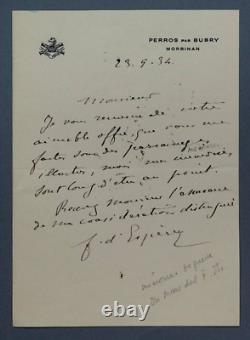 PERROS PAR BUBRY
MORBIHAN
23.5.34
Monsieur
Je vous remercie de votre
aimable offre que vous me
faites
illustres, mais mes mémoires
sont loin d'être au point.
Recevez Monsieur l'assurance
de ma considération distinguée
f. d'Espèrey
mémoires de guerre